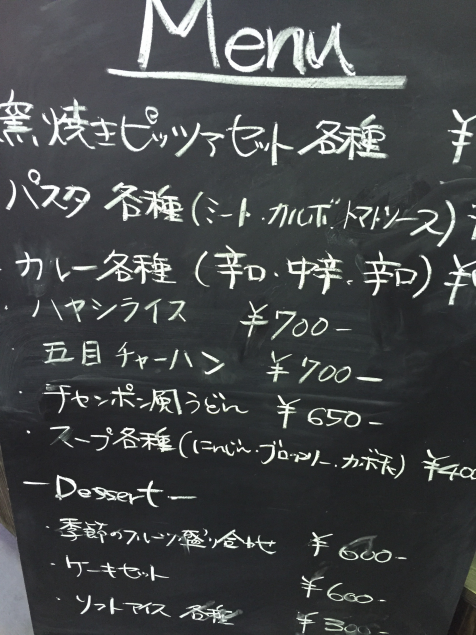 Menu
窯焼きピッツァセット 各種 ¥
パスタ 各種 (ミート・カルボ・トマトソース)
・カレー各種 (辛口・中辛・辛口) ¥
・ハヤシライス ¥700-
・五目チャーハン ¥700-
・チャンポン風うどん ¥650-
・スープ各種 (にんじん・ブロッコリー・カボチャ) ¥400
-Dessert-
・季節のフルーツ盛り合わせ ¥600-
・ケーキセット ¥600-
・ソフトアイス 各種 ¥300